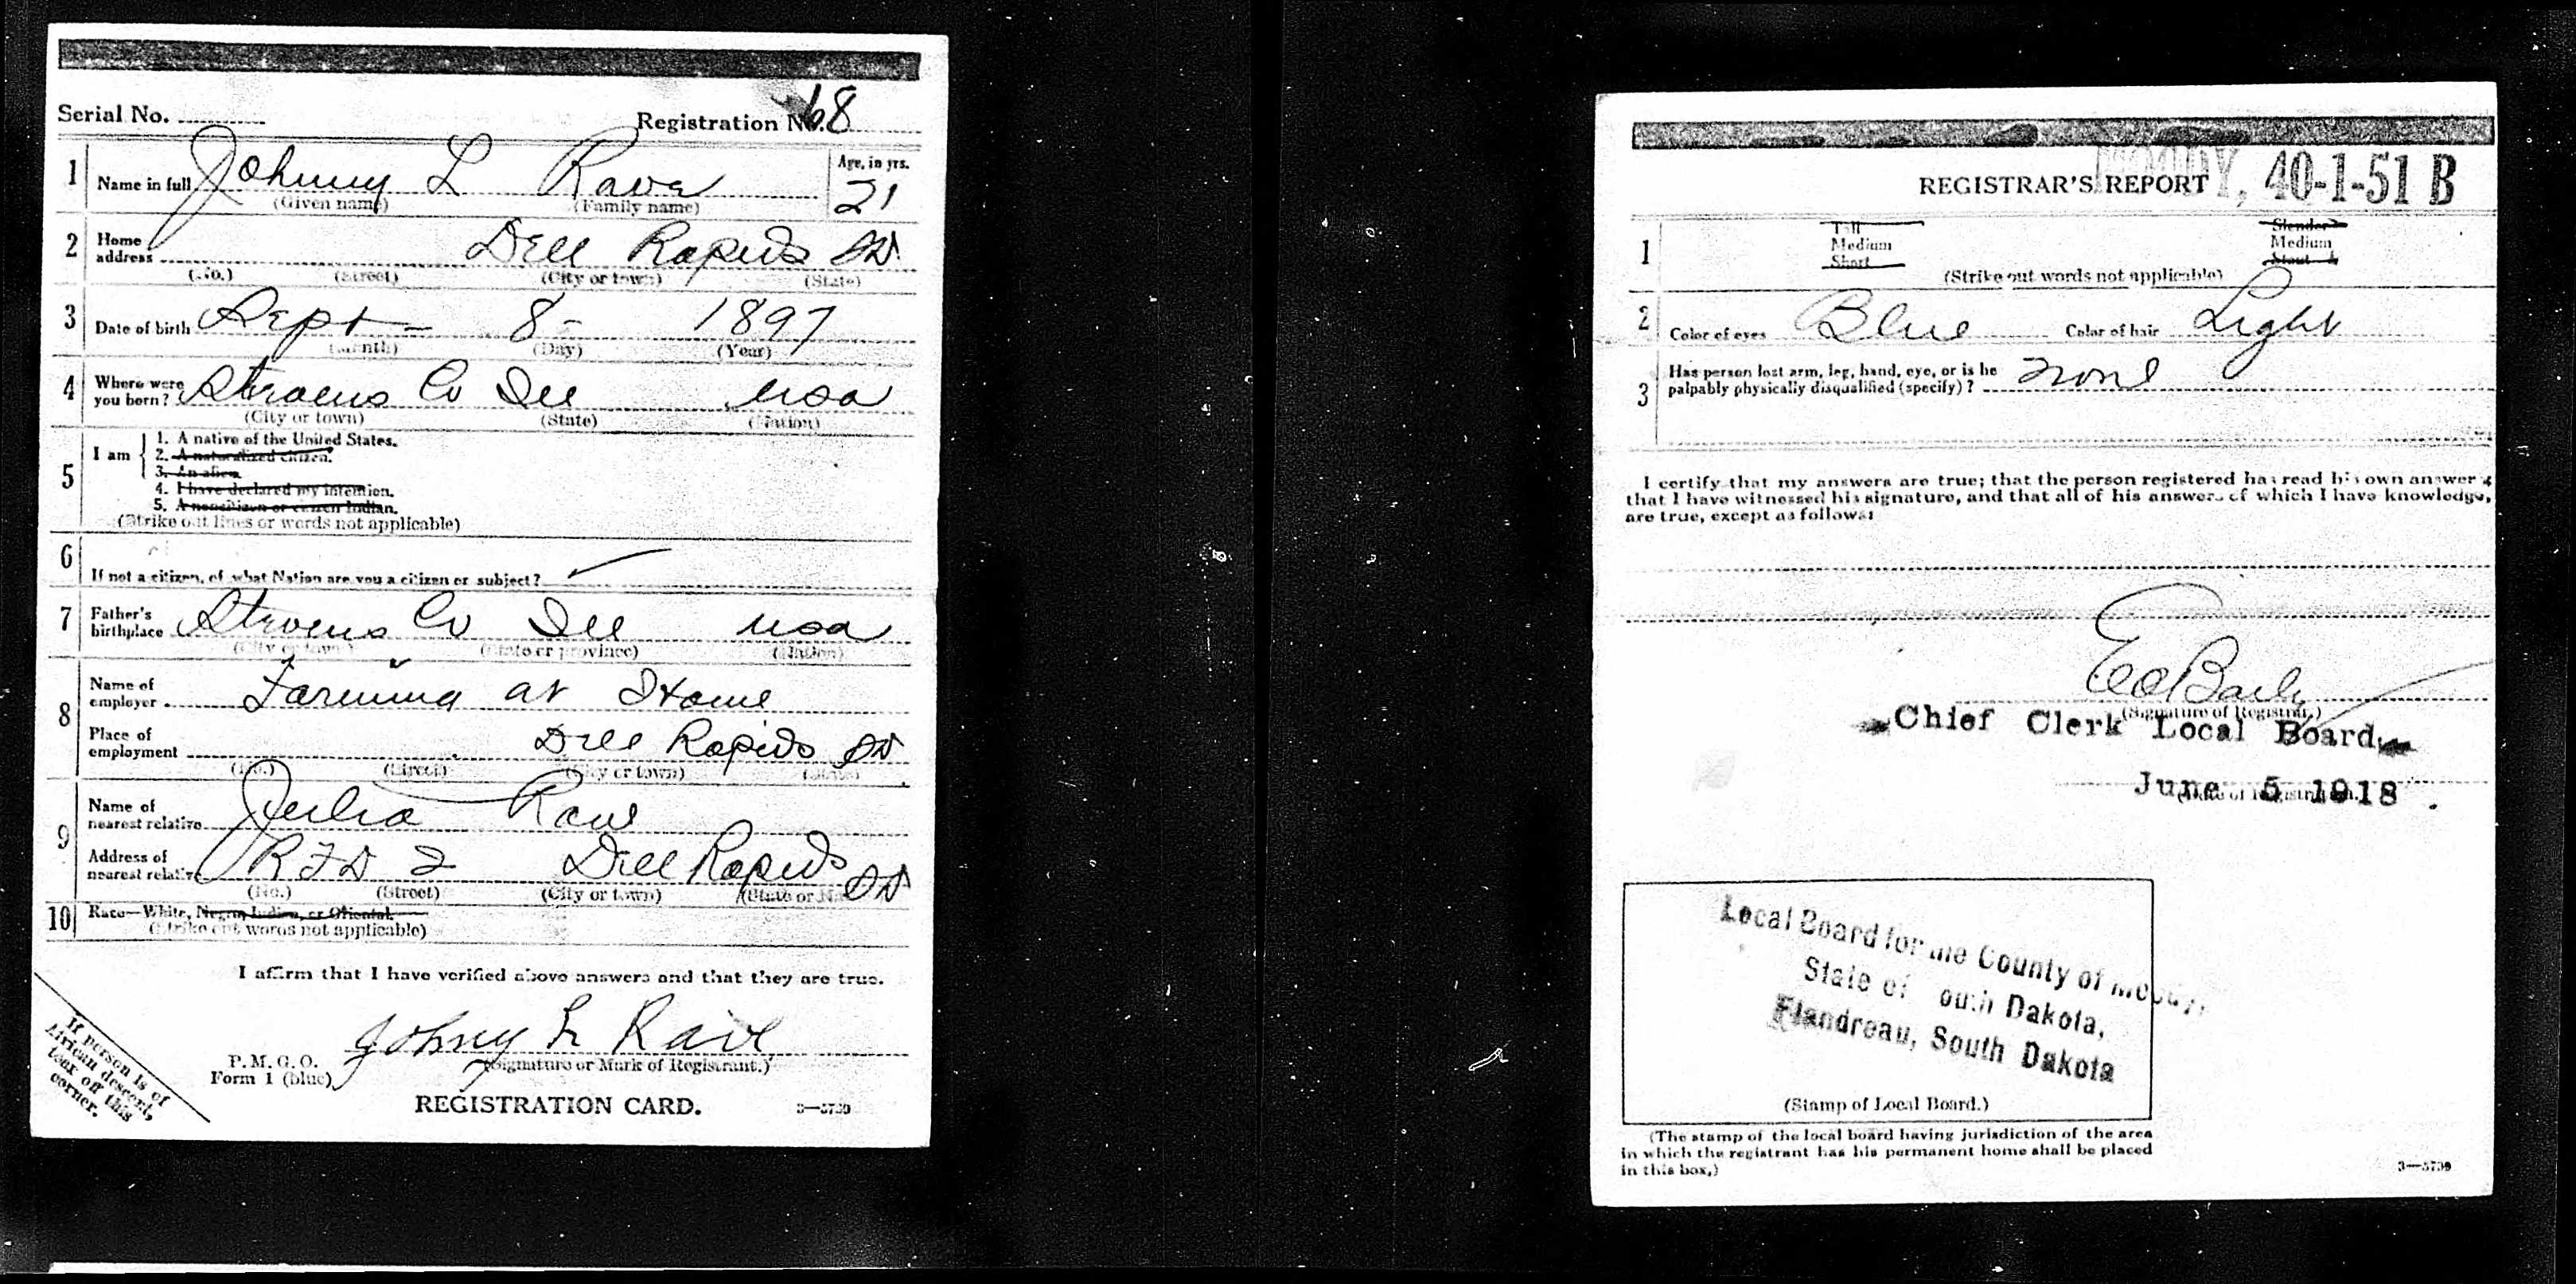 Serial No. Registration No. 68
1 Name in full Johnny L Rave Age, in yrs. 21
(Given name) (Family name)
2 Home address Dell Rapids SD
(No.) (Street) (City or town) (State)
3 Date of birth Sept - 8 - 1897
(Month) (Day) (Year)
4 Where were you born? Stevens Co Ill usa
(City or town) (State) (Nation)
5 I am
1. A native of the United States.
2. A naturalized citizen.
3. An alien.
4. I have declared my intention.
5. A noncitizen or citizen Indian.
(Strike out lines or words not applicable)
6 If not a citizen, of what Nation are you a citizen or subject?
7 Father's birthplace Stevens Co Ill usa
(City or town) (State or province) (Nation)
8 Name of employer Farming at Home
Place of employment Dell Rapids SD
(No.) (Street) (City or town) (State)
9 Name of nearest relative Julia Rave
Address of nearest relative RFD 2 Dell Rapids SD
(No.) (Street) (City or town) (State or
10 Race—White, Negro, Indian, or Oriental.
(Strike out words not applicable)
I affirm that I have verified above answers and that they are true.
Johny L Rave
P. M. G. O.
Form 1 (blue)
(Signature or Mark of Registrant.)
REGISTRATION CARD.
If person is of
African descent,
tear off this
corner.
REGISTRAR'S REPORT MOODY, 40-1-51 B
1 Tall Slender
Medium Medium
Short Stout
(Strike out words not applicable)
2 Color of eyes Blue Color of hair Light
3 Has person lost arm, leg, hand, eye, or is he
palpably physically disqualified (specify)? None
I certify that my answers are true; that the person registered has read his own answers
that I have witnessed his signature, and that all of his answers of which I have knowledge,
are true, except as follows:
(Signature of Registrar.)
Chief Clerk Local Board
June 5 1918
(Date of Registration.)
Local Board for the County of Moody,
State of South Dakota,
Flandreau, South Dakota
(Stamp of Local Board.)
(The stamp of the local board having jurisdiction of the area
in which the registrant has his permanent home shall be placed
in this box.)